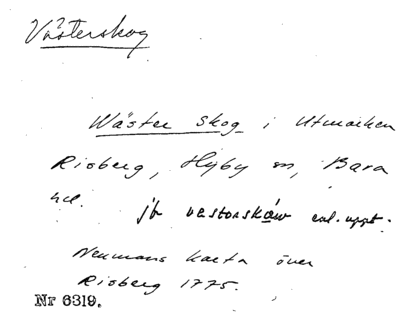 Västerskog
Wäster Skog i Utmarken
Risberg, Hyby sn, Bara
hd. jfr västerskåw enl. uppt.
Neumans karta över
Risberg 1775.
Nr 6319.